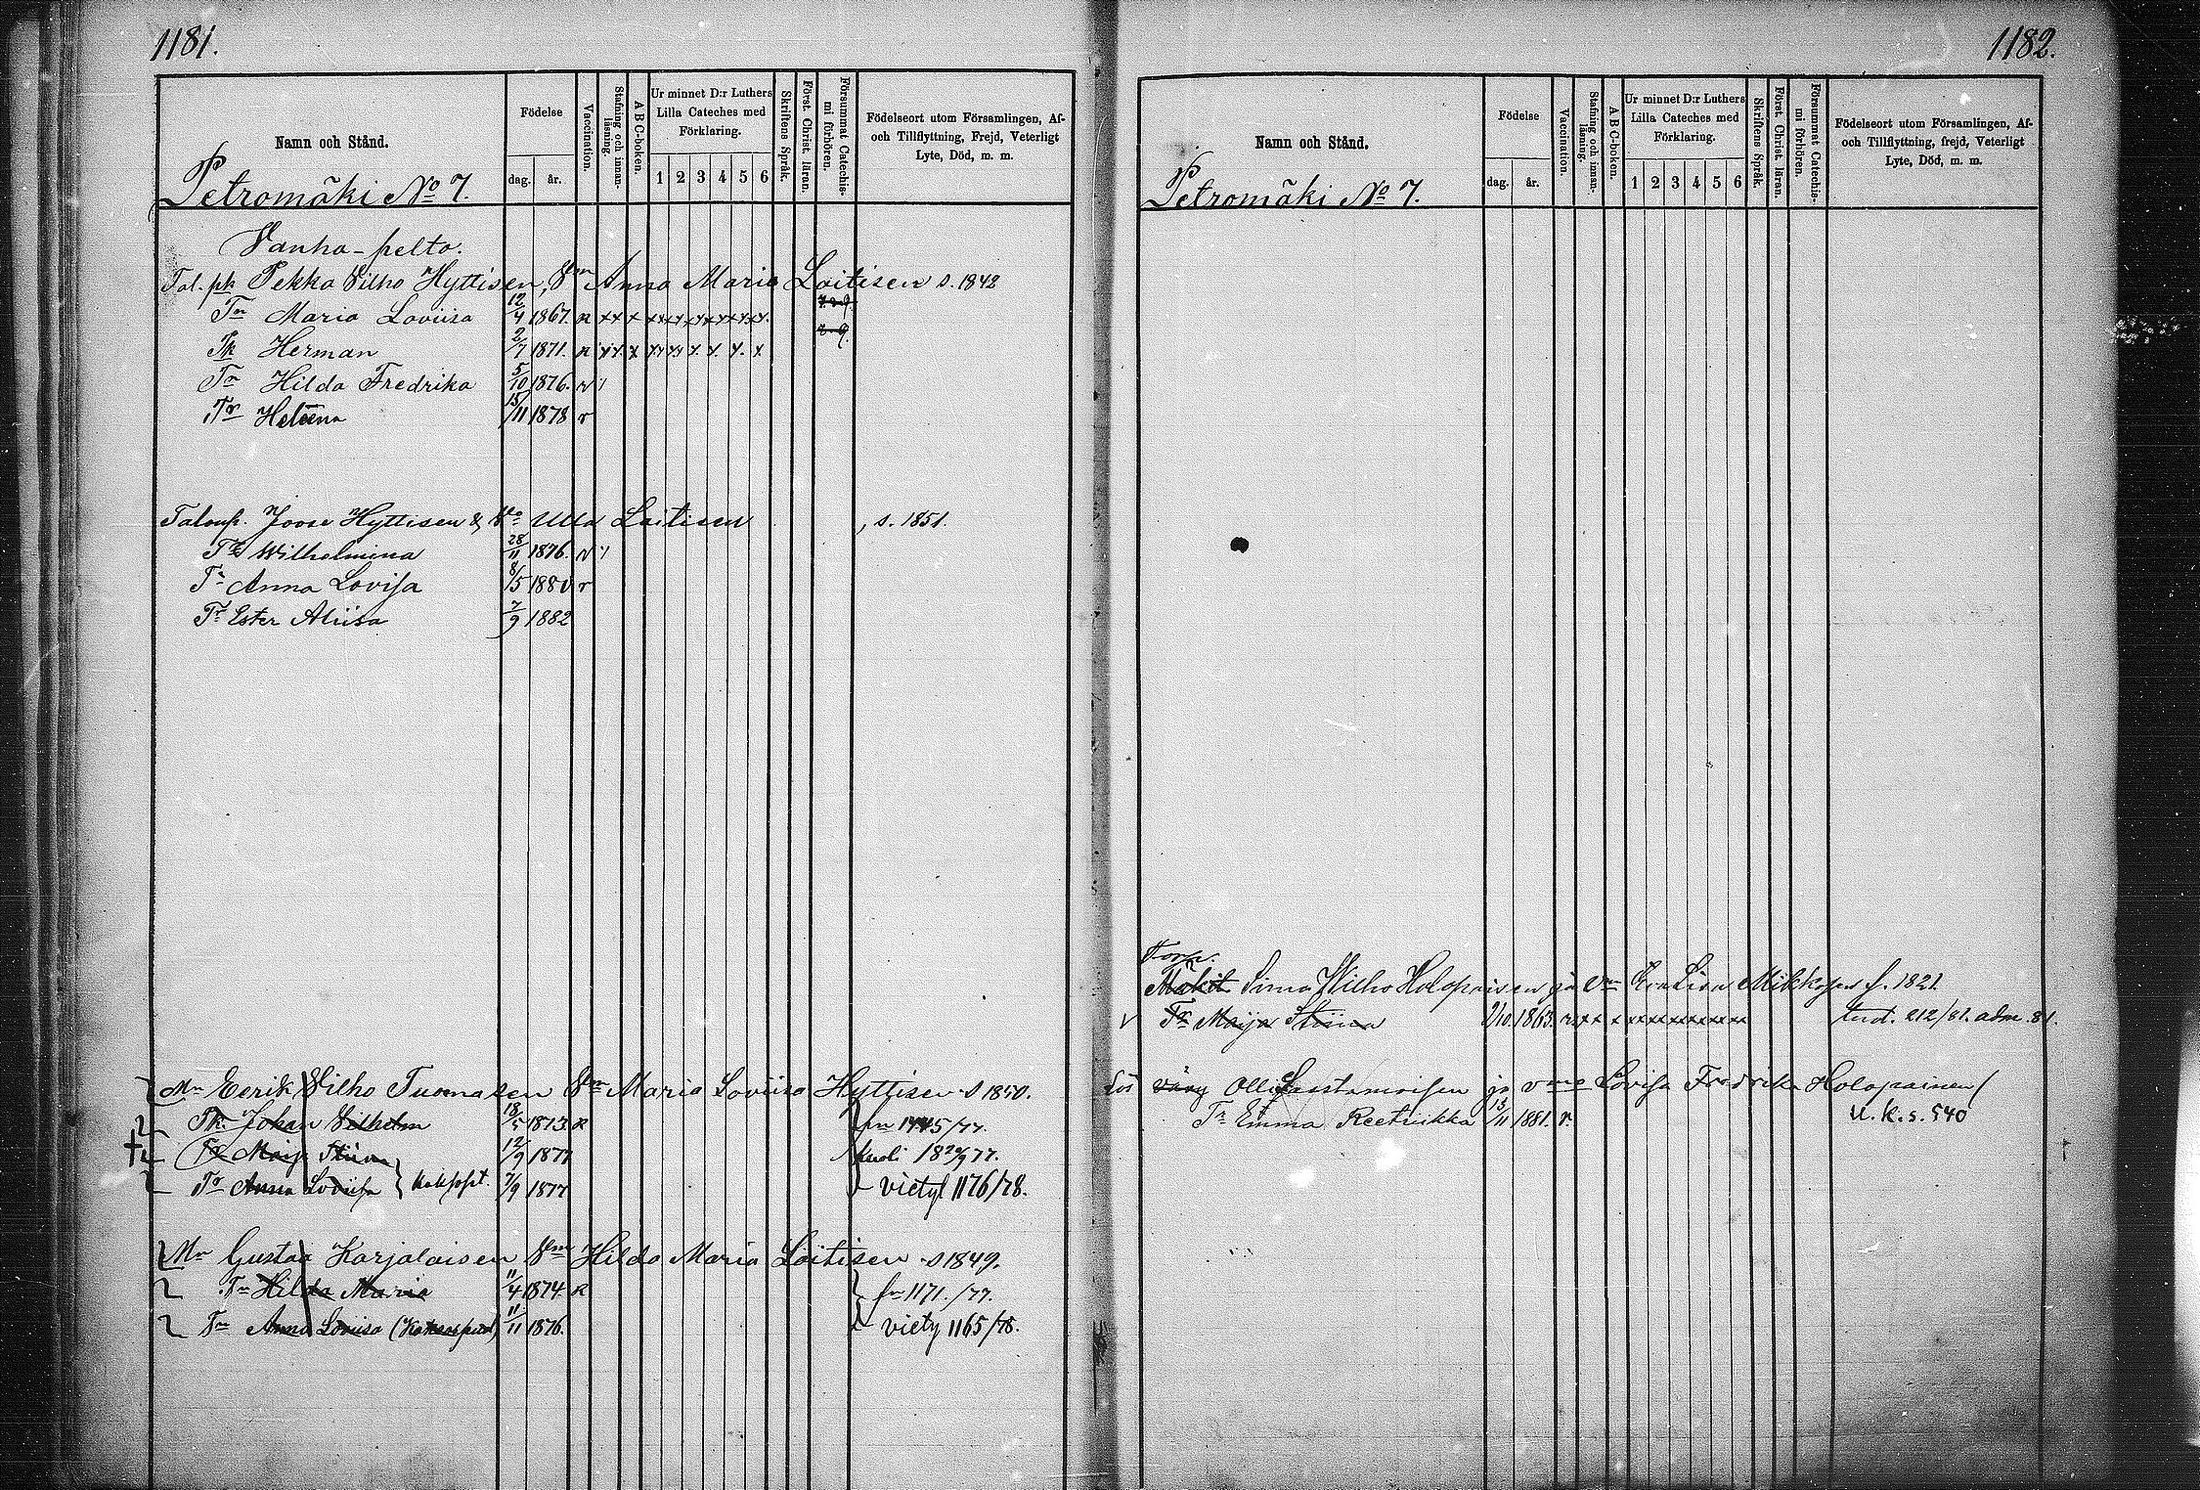 1181.
Namn och Stånd.
Födelse
dag.
år.
Vaccination.
Stafning och innan-läsning.
A B C-boken.
Ur minnet D:r Luthers
Lilla Cateches med
Förklaring.
1 2 3 4 5 6
Skriftens Språk.
Först. Christ. läran.
Försummat Catechis-mi förhören.
Födelseort utom Församlingen, Af-
och Tillflyttning, Frejd, Veterligt
Lyte, Död, m. m.
Petromäki No 7.
Vanha-pelto.
Tal. pk Pekka Vilho Hyttisen, Vm Anna Maria Laitisen s. 1842
Tr Maria Loviisa 12/4 1867. R
Pk Herman 2/7 1871. R
Tr Hilda Fredrika 5/10 1876.
Tr Heleena 15/11 1878 r
Talonp. Joose Hyttisen & Vmo Ulla Laitisen, s. 1851.
Tr Wilhelmina 28/11 1876.
Tr Anna Lovisa 8/5 1880 r
Tr Ester Aliisa 7/9 1882
Mn Eerik Vilho Tuomasen Vm Maria Loviisa Hyttisen s 1850.
Pk. Johan Vilhelm 18/5 1873 R
Tr Maija Stiina 12/9 1877 kuoli
Tr Anna Loviisa 7/9 1877 viety 1176/78.
Mn Gustaa Karjalaisen Vm Hilda Maria Laitisen s 1849.
Tr Hilda Maria 11/4 1874. R 1171./77.
Tr Anna Loviisa 11/11 1876. viety 1165/78.
1182.
Namn och Stånd.
Födelse
dag.
år.
Vaccination.
Stafning och innan-läsning.
A B C-boken.
Ur minnet D:r Luthers
Lilla Cateches med
Förklaring.
1 2 3 4 5 6
Skriftens Språk.
Först. Christ. läran.
Försummat Catechis-mi förhören.
Födelseort utom Församlingen, Af-
och Tillflyttning, frejd, Veterligt
Lyte, Död, m. m.
Petromäki No 7.
Torp.
Mäkit Simo Wilho Holopaisen ja Vm Eva Lisa Mikkosen s. 1821.
Tr Maija Stiina 1863. 212/81. adm. 81.
Lois Olli ja vmo Lovisa Fredrika Holopainen
Tr Emma Reetriikka 13/11 1881. r. U.k.s. 540